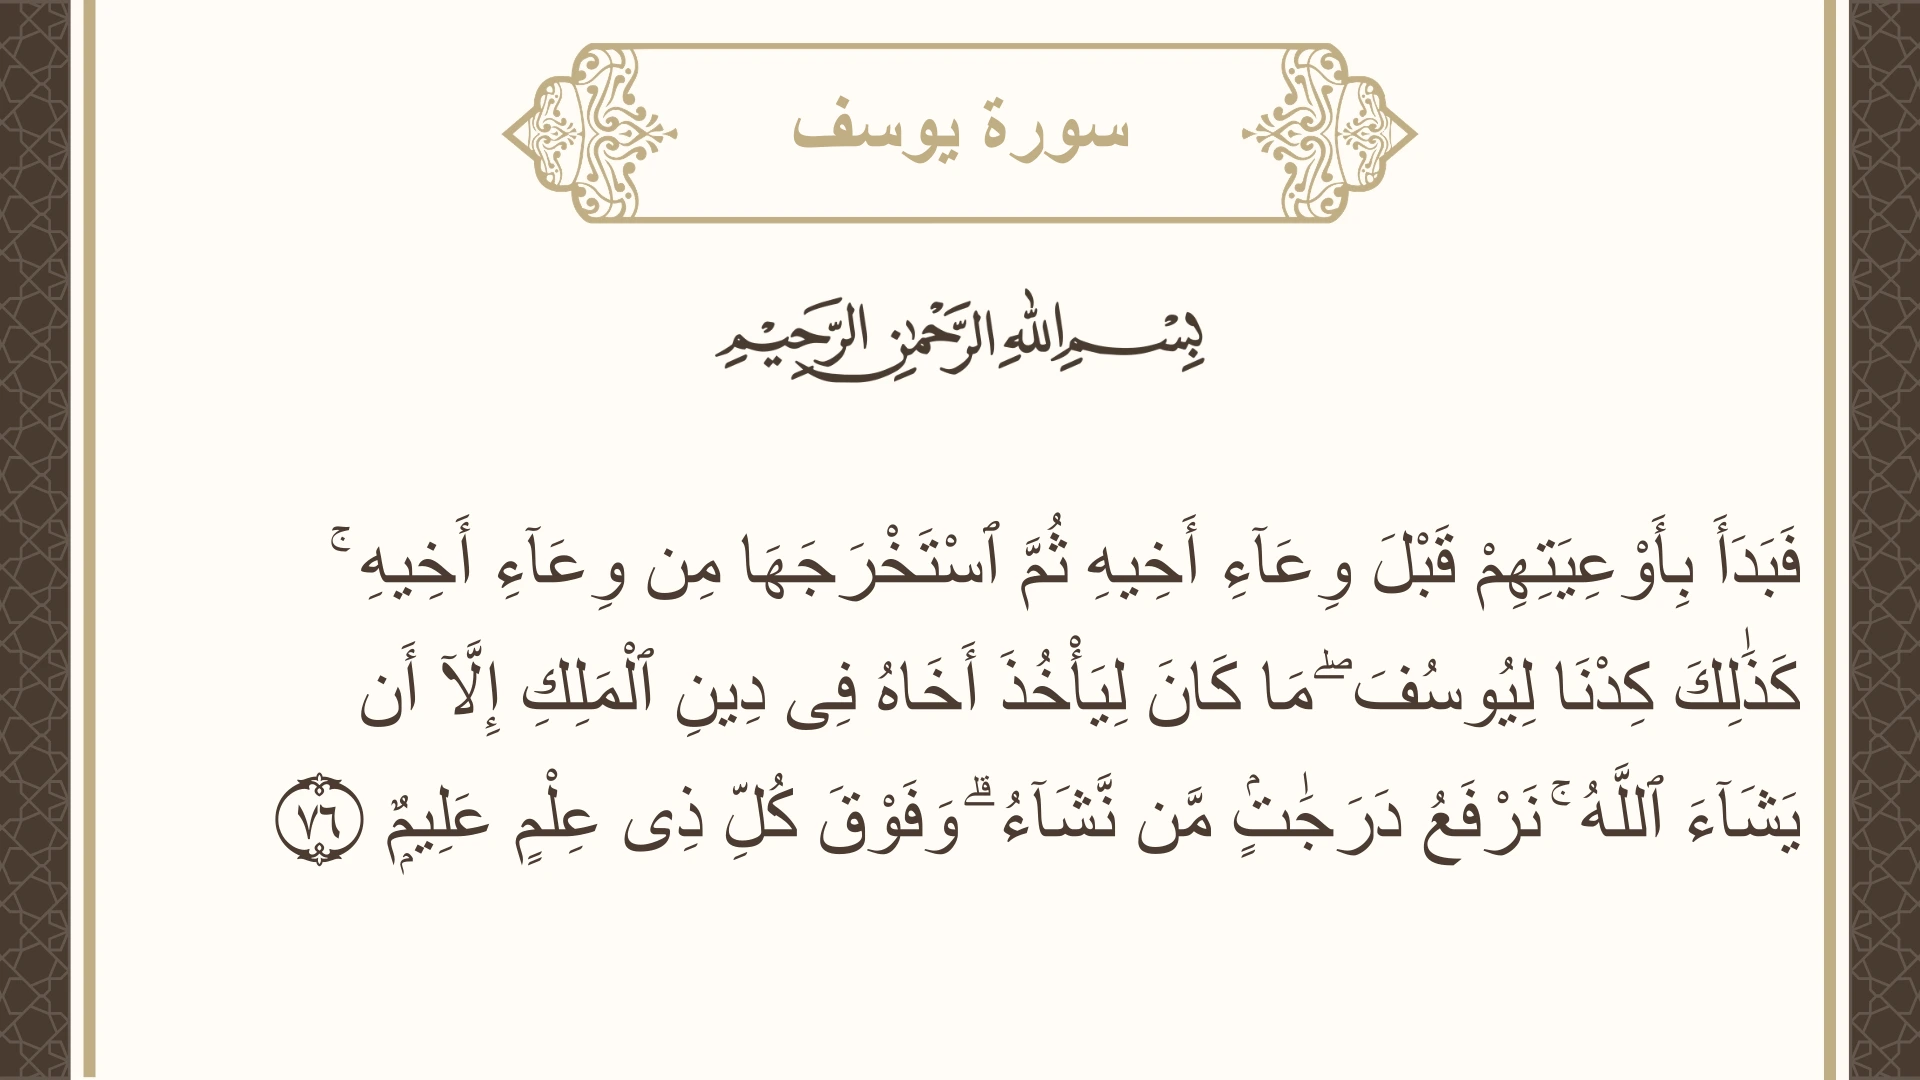 سورة يوسف
بِسْمِ اللهِ الرَّحْمٰنِ الرَّحِيْمِ
فَبَدَأَ بِأَوْعِيَتِهِمْ قَبْلَ وِعَآءِ أَخِيهِ ثُمَّ ٱسْتَخْرَجَهَا مِن وِعَآءِ أَخِيهِ ۚ
كَذَٰلِكَ كِدْنَا لِيُوسُفَ ۖ مَا كَانَ لِيَأْخُذَ أَخَاهُ فِى دِينِ ٱلْمَلِكِ إِلَّآ أَن
يَشَآءَ ٱللَّهُ ۚ نَرْفَعُ دَرَجَٰتٍۢ مَّن نَّشَآءُ ۗ وَفَوْقَ كُلِّ ذِى عِلْمٍ عَلِيمٌۭ ٧٦